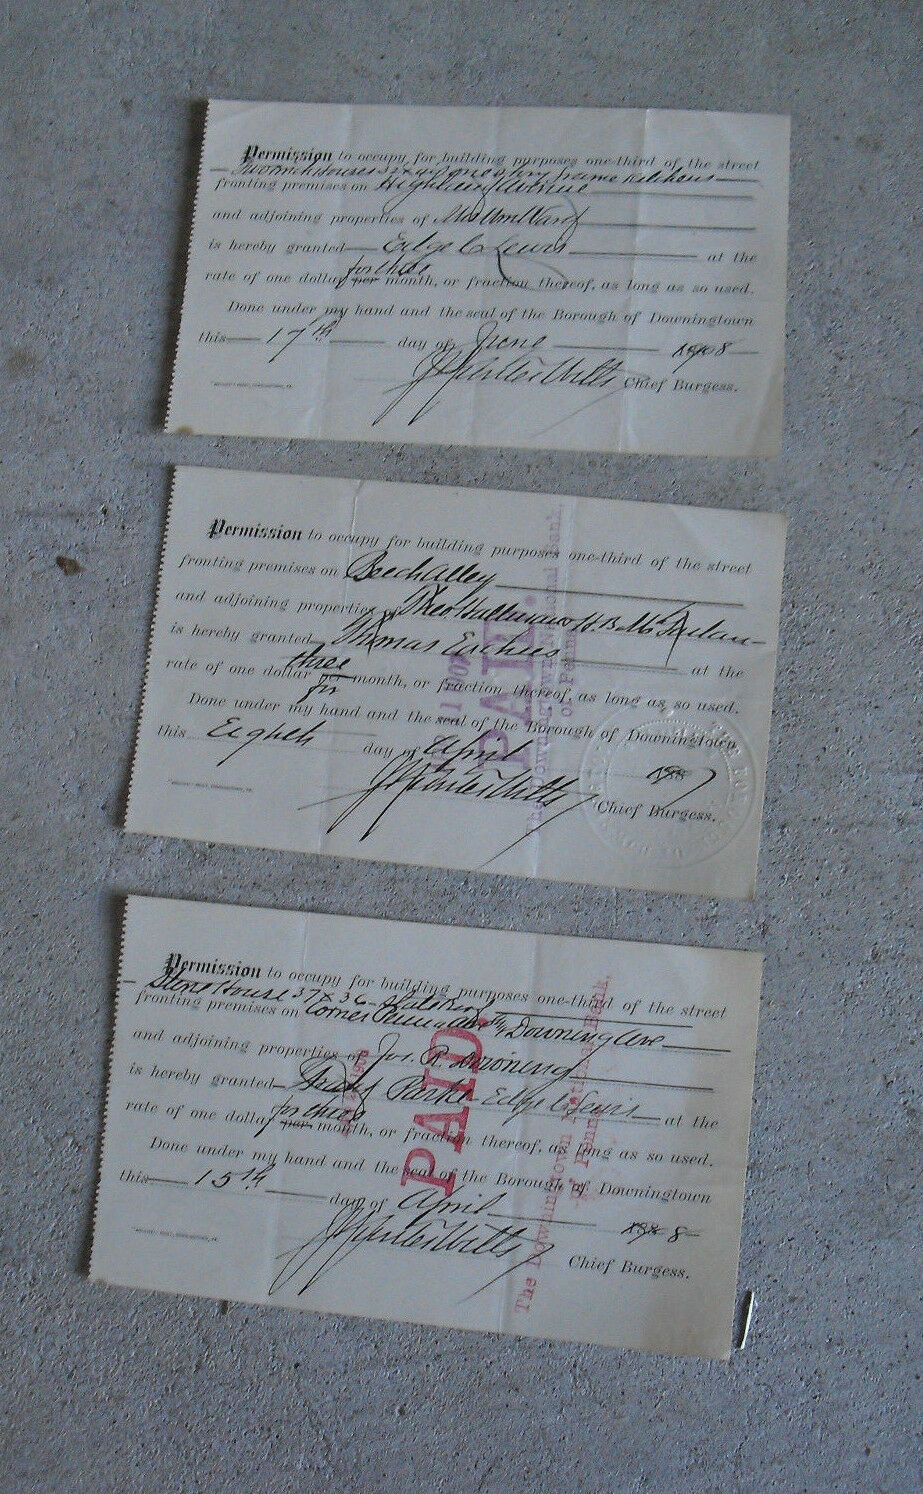 Permission to occupy for building purposes one-third of the street
Two brick houses 32 x one story frame kitchens
fronting premises on Highland Avenue
and adjoining properties of Mrs Wm Ward
is hereby granted Edge C Lewis at the
for three
rate of one dollar per month, or fraction thereof, as long as so used.
Done under my hand and the seal of the Borough of Downingtown
this 17th day of June 1908
Chief Burgess.
Permission to occupy for building purposes one-third of the street
fronting premises on Beech Alley
and adjoining properties of H. B. Mc
is hereby granted Thomas at the
three
rate of one dollar per month, or fraction thereof, as long as so used.
for
Done under my hand and the seal of the Borough of Downingtown
this Eighth day of April 1907
Chief Burgess.
PAID.
The Downingtown National Bank,
of Penna
Permission to occupy for building purposes one-third of the street
Stone House 37 x 36
fronting premises on Corner Ave Downing Ave
and adjoining properties of Jos. R. Downing
is hereby granted Parke Edge C Lewis at the
for three
rate of one dollar per month, or fraction thereof, as long as so used.
Done under my hand and the seal of the Borough of Downingtown
this 15th day of April 1908
Chief Burgess.
PAID.
The Downingtown National Bank
of Penna